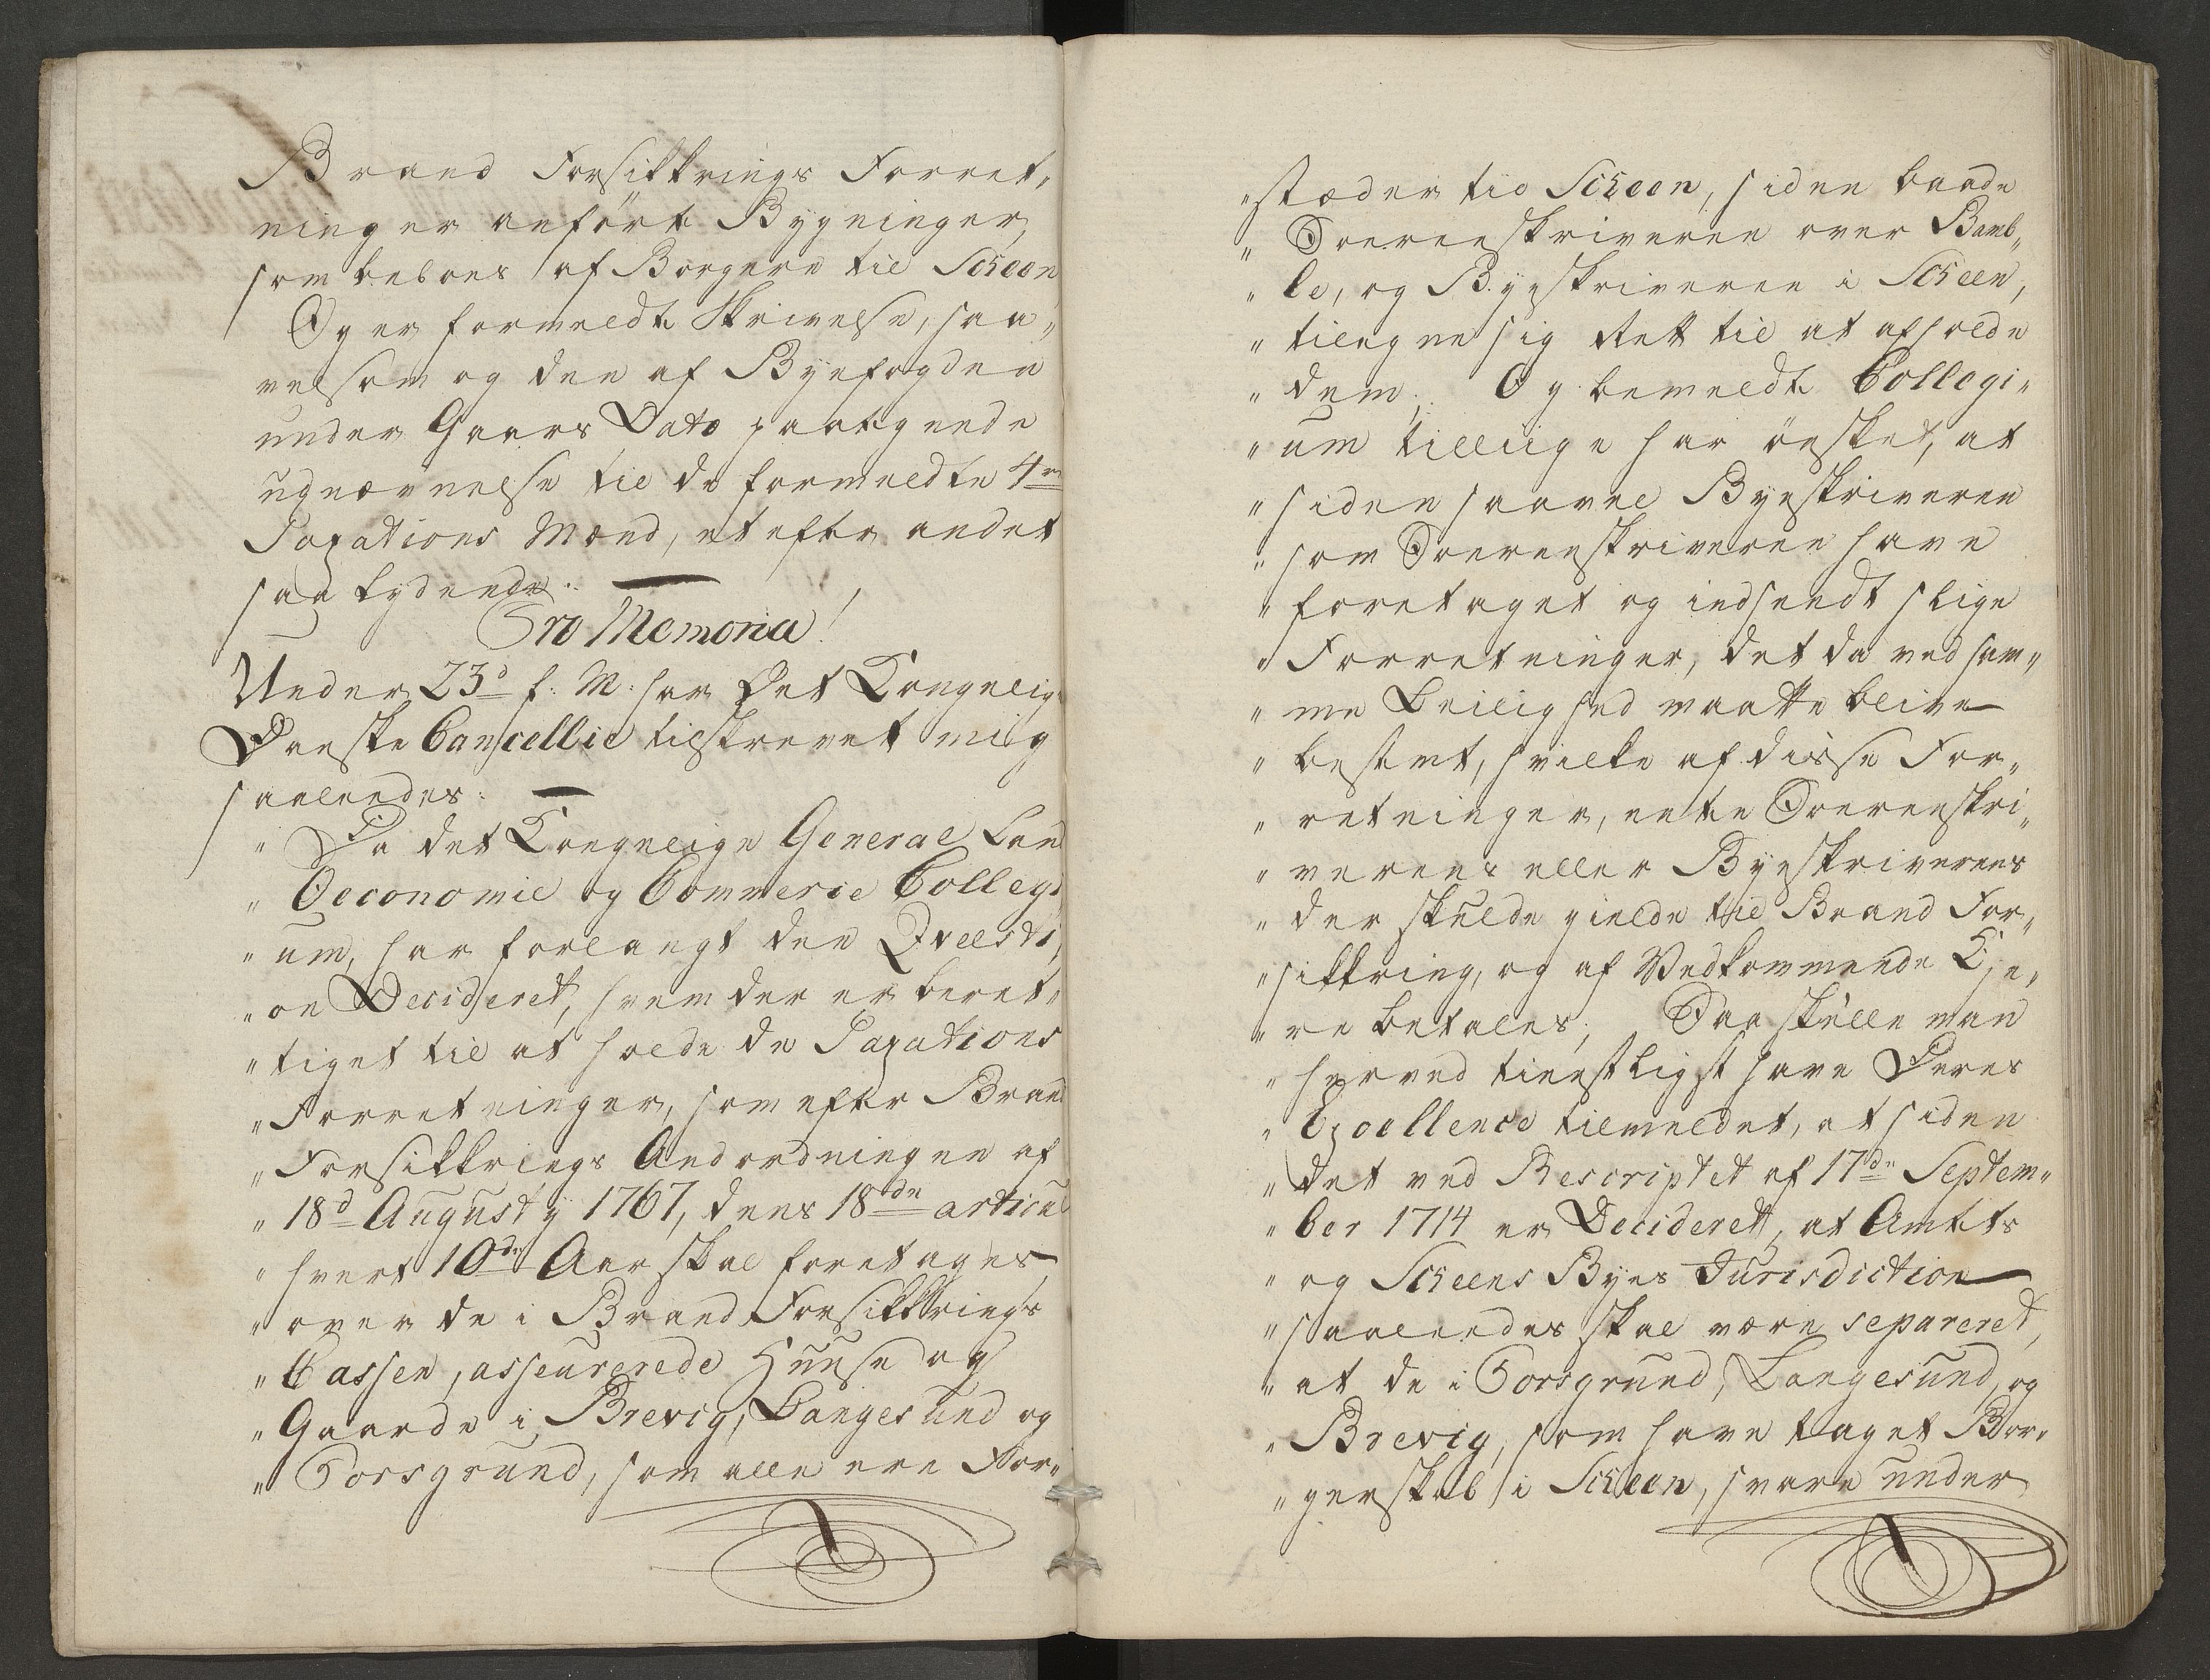 Brand Forsikkrings Forret,
ninger anført Bygninger,
som beboes af Borgere til Scheen
Og er formeldte Skrivelse, saa,
velsom og den af Byefogden
under Gaars Dato paategnede
udnævnelse til de formeldte 4re
Taxations Mænd, et efter andet
saa lydende:
Pro Memoria!
Under 23d f: M: har Det Kongelig
Danske Cancellie tilskrevet mig
saaledes:
" Da det Kongelige General Land
" Oeconomie og Commerce Collegi
" um, har forlangt den Qvesti,
" on Decideret, hvem der er beret,
" tiget til at holde de Taxations
" Forretninger, som efter Brand
" Forsikkrings Andordningen af
" 18d Augusty 1767, dens 18de articul
" hvert 10de Aar skal foretages
" over de i Brand Forsikkrings
" Cassen, asseurerede Huuse og
" Gaarde i Brevig, Langesund og
" Porsgrund, som alle ere For,
" stæder til Scheen, siden baade
" Sorenskriveren over Bamb,
" le, og Byeskriveren i Scheen,
" tilegne sig Rett til at afholde
" dem; Og bemeldte Collegi,
" um tilliige har ønsket, at
" siden saavel Byeskriveren
" som Sorenskriveren have
" foretaget og indsendt slige
" Forretninger, det da ved sam,
" me Leilighed maatte blive
" bestemt, hvilke af disse For,
" retninger, enten Sorenskri,
" verens eller Byeskriverens
" der skulde gielde til Brand For,
" sikkring, og af Vedkommende Eje,
" re betales; Saa skulle man
" herved tienstligst have Deres
" Excellence tilmeldet, at siden
" det ved Rescriptet af 17de Septem,
" ber 1714 er Decideret, at Amtets
" og Scheens Byes Jurisdiction
" saaledes skal være separeret,
" at de i Porsgrund, Langesund, og
" Brevig, som have taget Bor,
" gerskab i Scheen, svare under